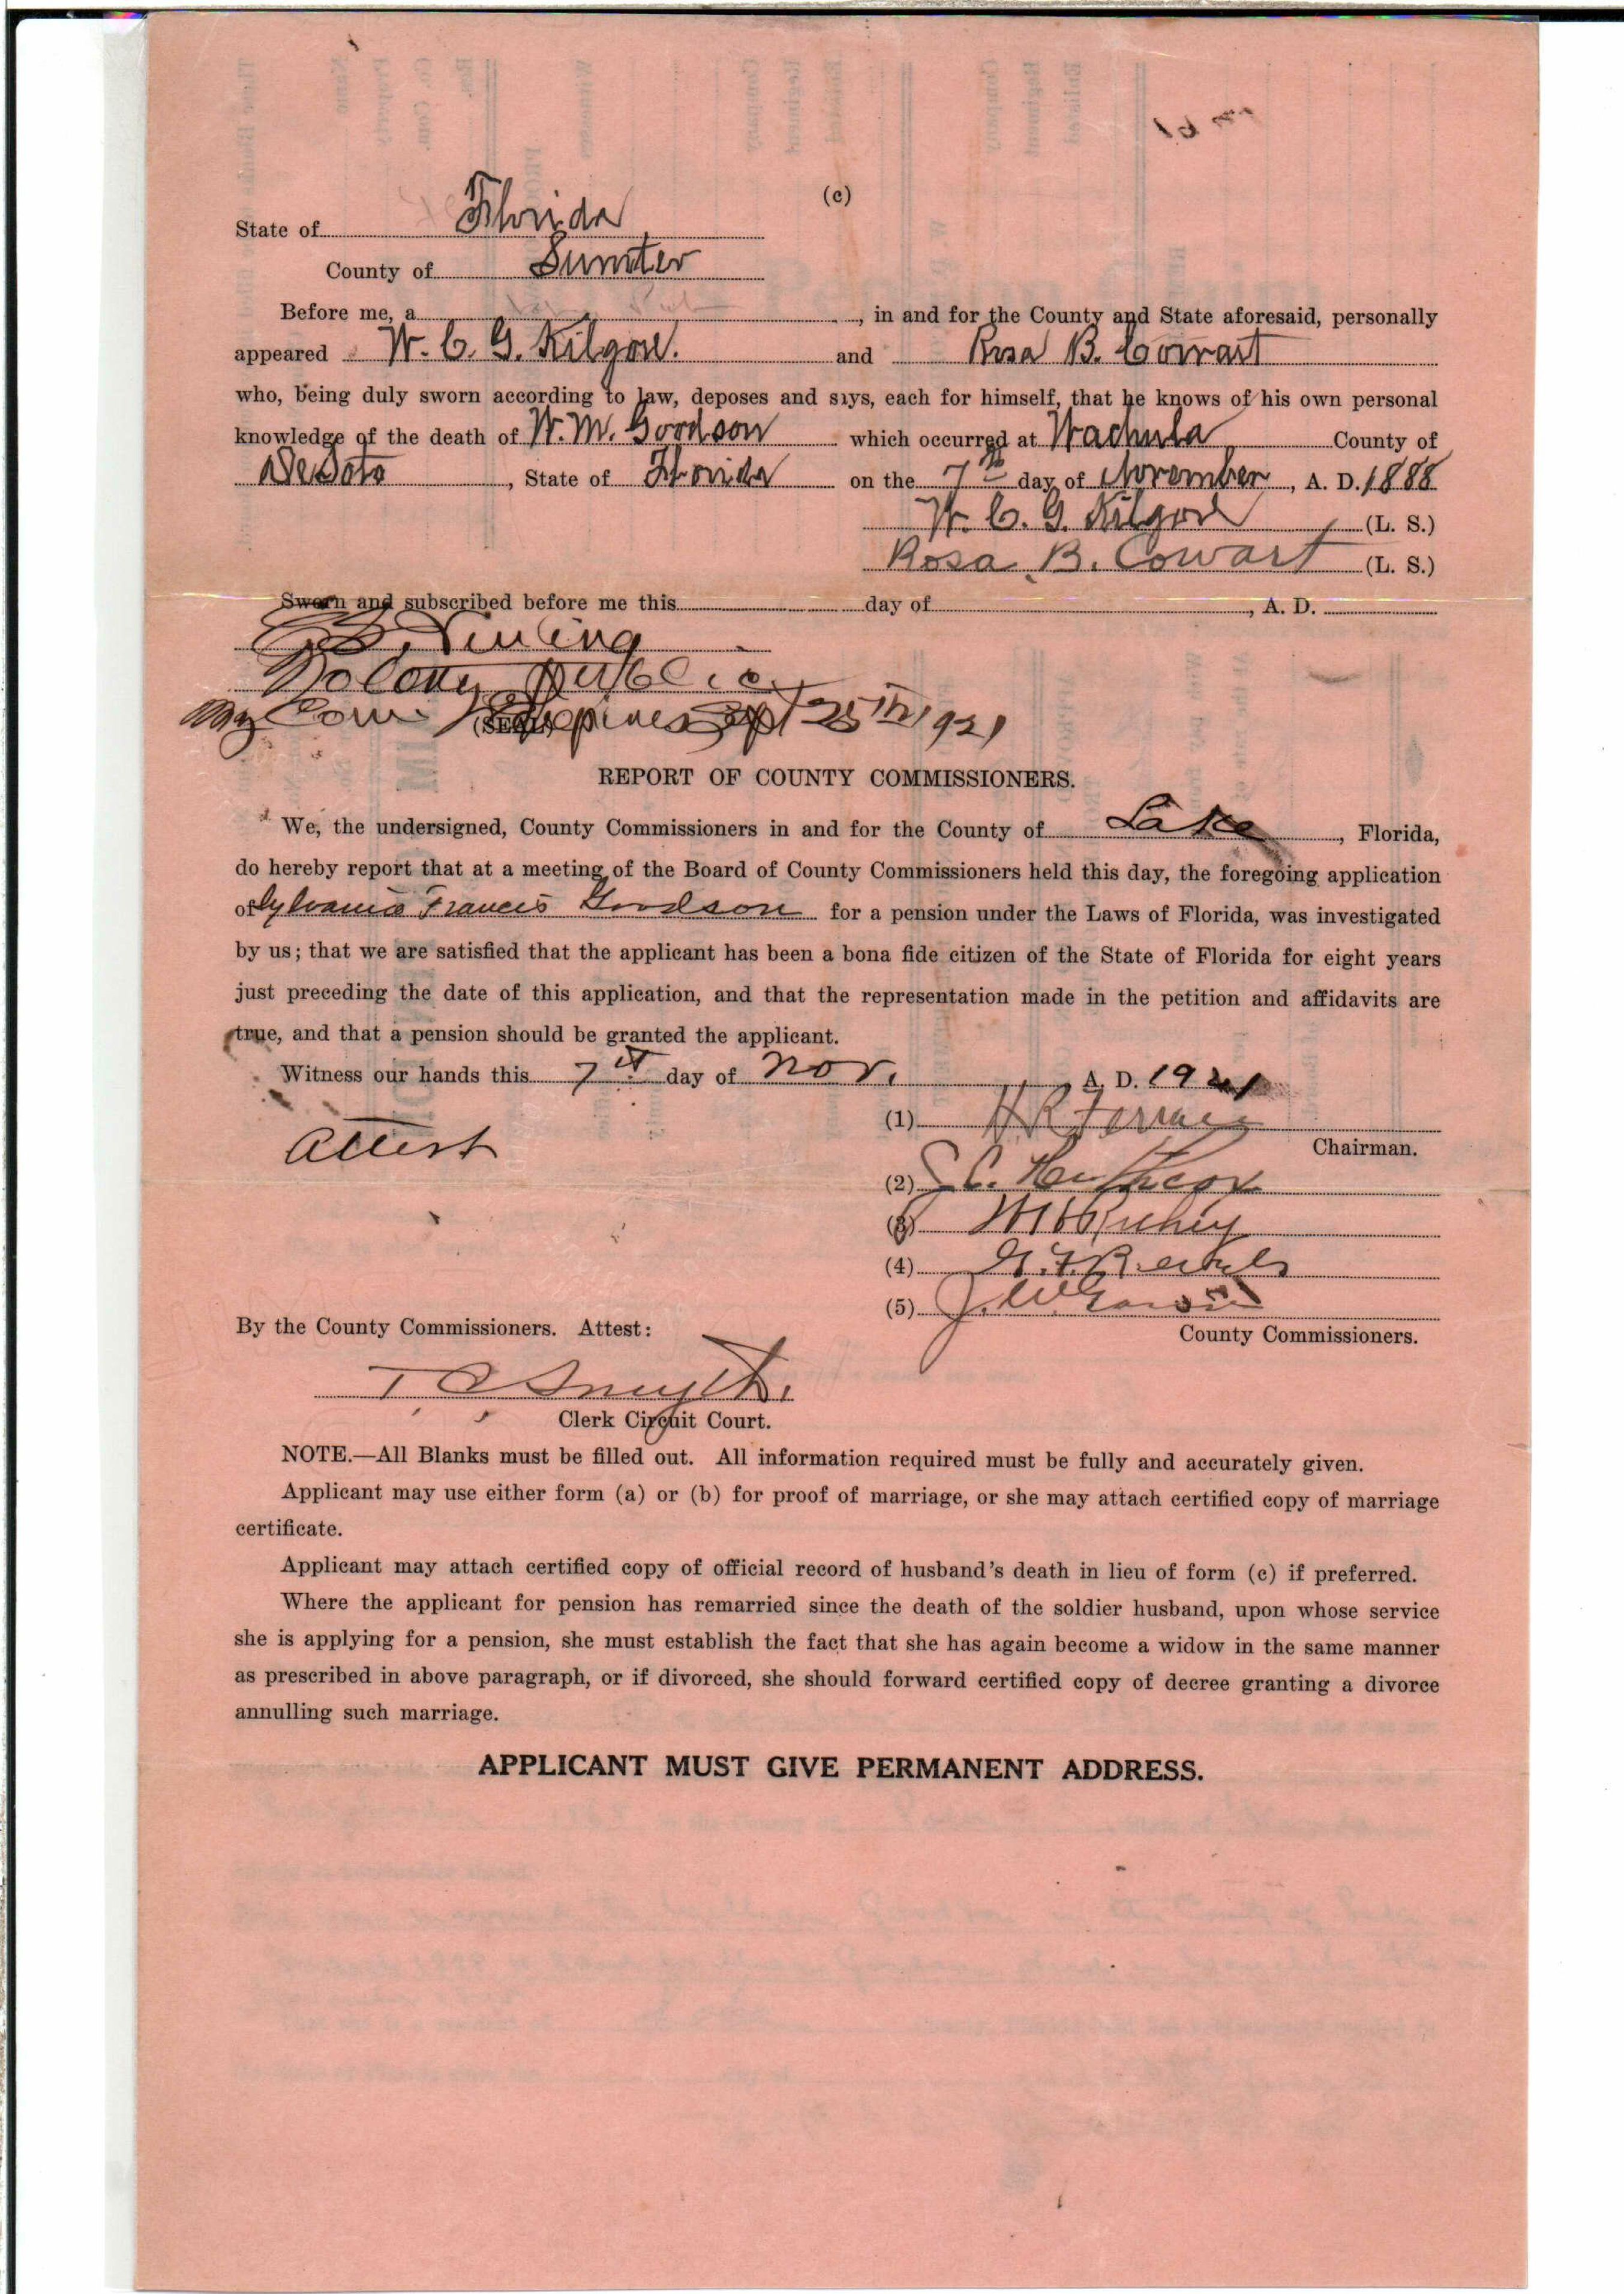 (c)
State of Florida
County of Sumter
Before me, a , in and for the County and State aforesaid, personally
appeared W. C. G. Kilgore. and Rosa B. Cowart
who, being duly sworn according to law, deposes and says, each for himself, that he knows of his own personal
knowledge of the death of W. M. Goodson which occurred at Wachula County of
DeSoto, State of Florida on the 7th day of November, A. D. 1888
W. C. G. Kilgore (L. S.)
Rosa B. Cowart (L. S.)
Sworn and subscribed before me this day of , A. D.
Notary Public
My Com Expires Sept 25th 1921
REPORT OF COUNTY COMMISSIONERS.
We, the undersigned, County Commissioners in and for the County of Lake, Florida,
do hereby report that at a meeting of the Board of County Commissioners held this day, the foregoing application
of Sylvania Francis Goodson for a pension under the Laws of Florida, was investigated
by us; that we are satisfied that the applicant has been a bona fide citizen of the State of Florida for eight years
just preceding the date of this application, and that the representation made in the petition and affidavits are
true, and that a pension should be granted the applicant.
Witness our hands this 7th day of Nov. A. D. 1921
(1) H R
Chairman.
Attest
(2)
(3)
(4)
(5) J. W.
County Commissioners.
By the County Commissioners. Attest:
T C Smyth.
Clerk Circuit Court.
NOTE.—All Blanks must be filled out. All information required must be fully and accurately given.
Applicant may use either form (a) or (b) for proof of marriage, or she may attach certified copy of marriage
certificate.
Applicant may attach certified copy of official record of husband's death in lieu of form (c) if preferred.
Where the applicant for pension has remarried since the death of the soldier husband, upon whose service
she is applying for a pension, she must establish the fact that she has again become a widow in the same manner
as prescribed in above paragraph, or if divorced, she should forward certified copy of decree granting a divorce
annulling such marriage.
APPLICANT MUST GIVE PERMANENT ADDRESS.